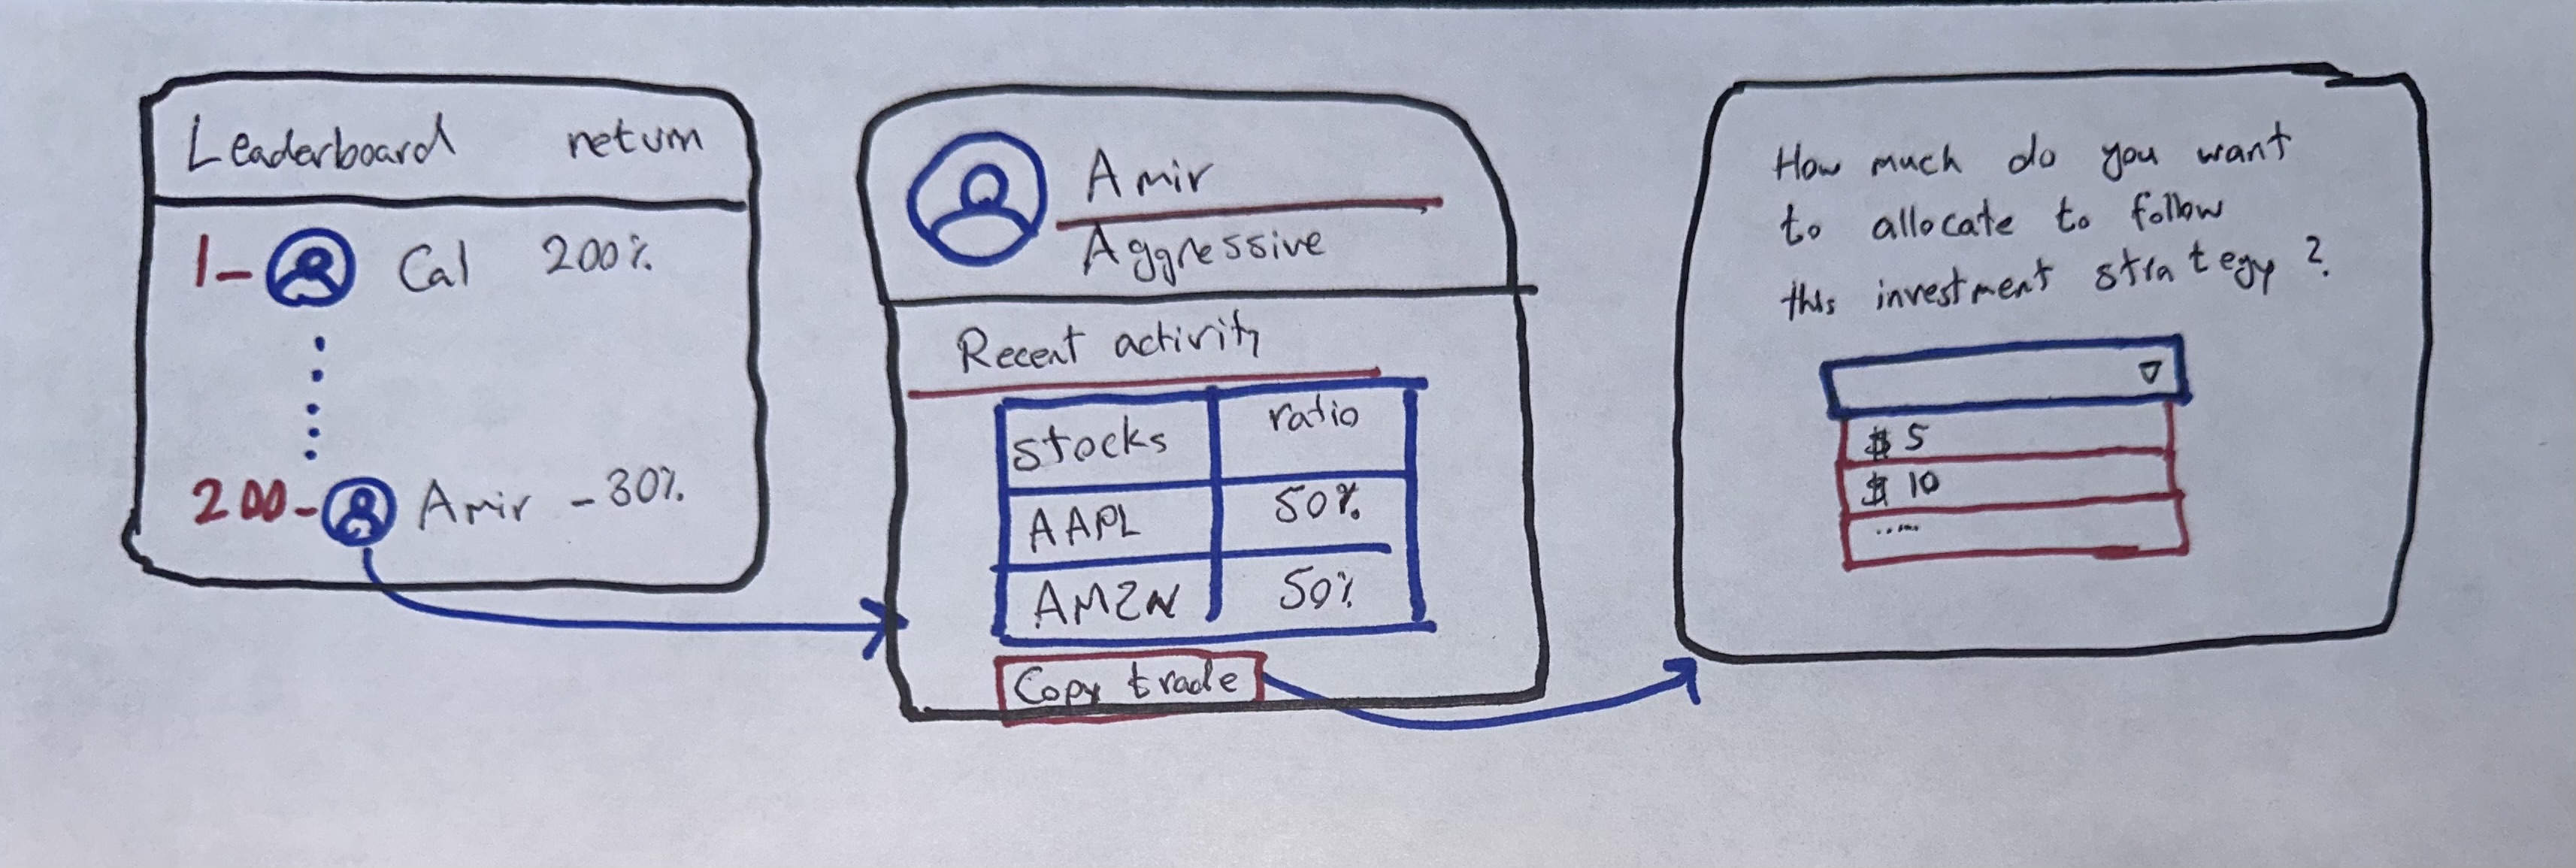 Leaderboard return
1- Cal 200%
200- Amir -30%
Amir
Aggressive
Recent activity
stocks ratio
AAPL 50%
AMZN 50%
Copy trade
How much do you want
to allocate to follow
this investment strategy?
$5
$10
.....